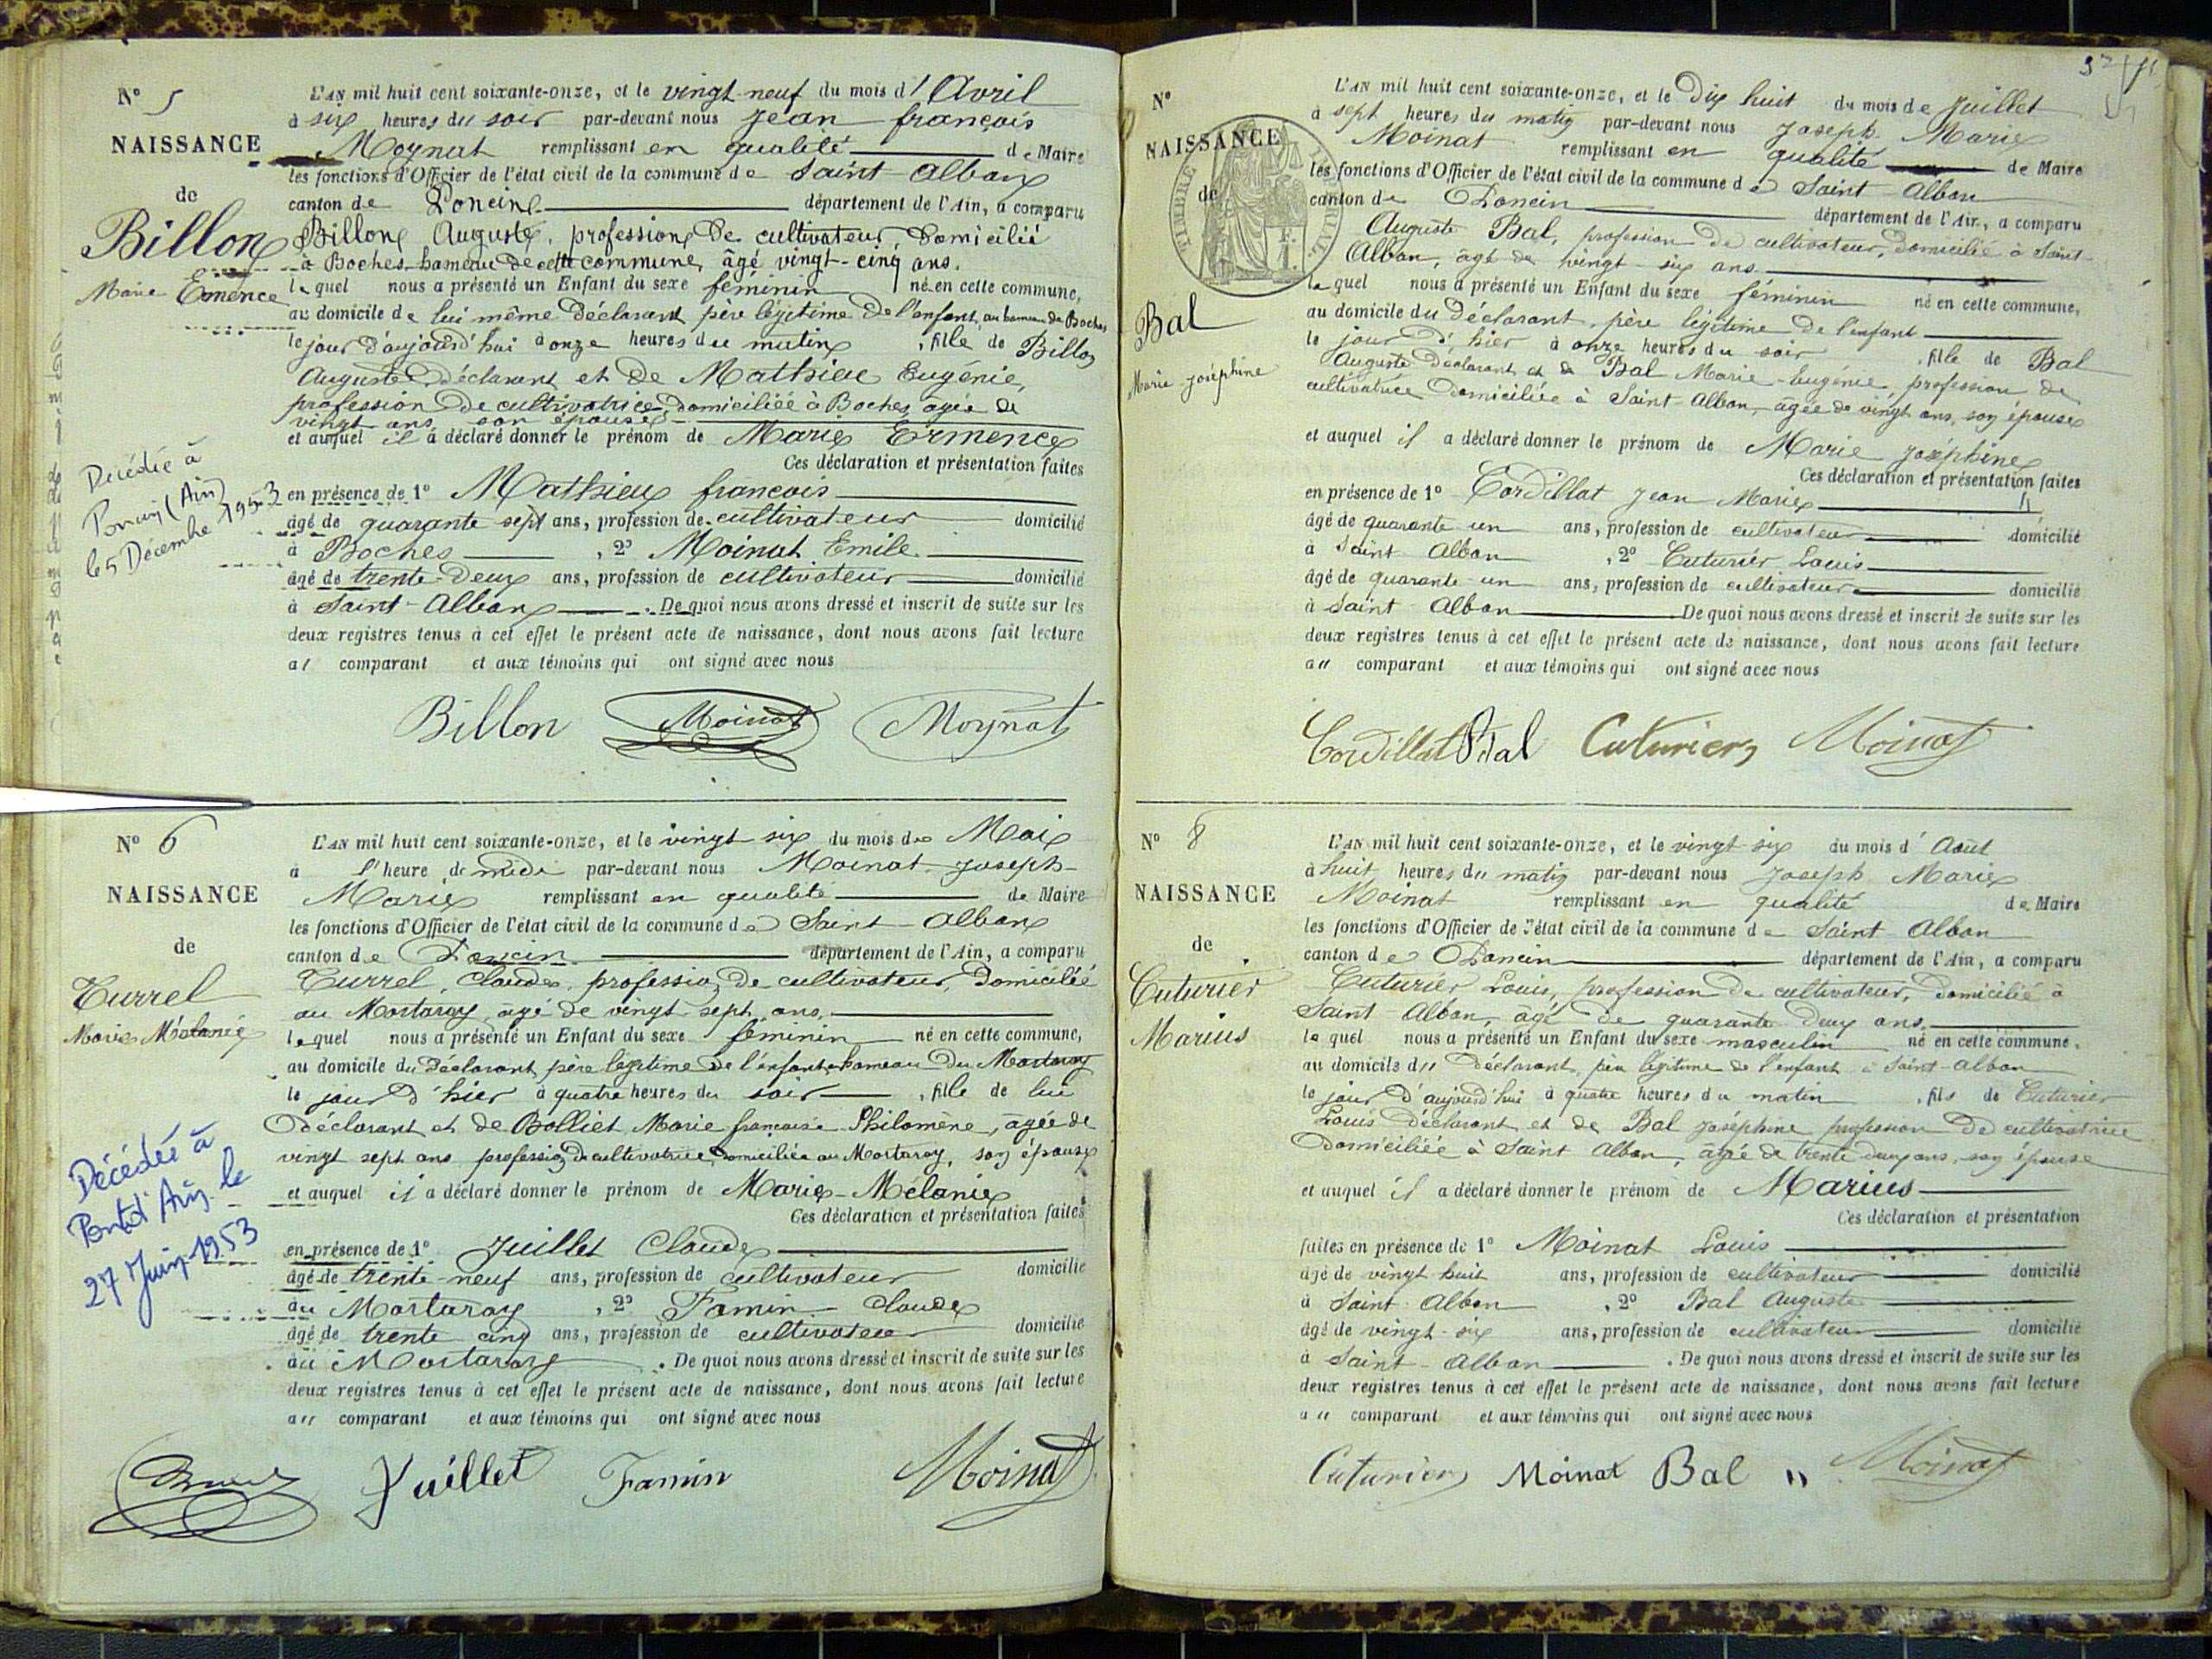 N° 5
NAISSANCE
de
Billon
Marie Emence
Décédée à
Poncin (Ain)
le 5 Décembre 1953
L'AN mil huit cent soixante-onze, et le vingt neuf du mois d' Avril
à six heures du soir par-devant nous Jean françois
Moynat remplissant en qualité de Maire
les fonctions d'Officier de l'état civil de la commune de Saint-Alban
canton de Poncin département de l'Ain, a comparu
Billon Auguste, profession de cultivateur, domicilié
à Boches hameau de cette commune, âgé vingt-cinq ans.
lequel nous a présenté un Enfant du sexe féminin né en cette commune,
au domicile de lui même déclarant père légitime de l'enfant, au hameau de Boches
le jour d'aujourd'hui à onze heures du matin, fille de Billon
Auguste déclarant et de Mathieu Eugénie,
profession de cultivatrice, domiciliée à Boches, agée de
vingt ans, son épouse
et auquel il a déclaré donner le prénom de Marie Ermence
Ces déclaration et présentation faites
en présence de 1° Mathieu françois
âgé de quarante sept ans, profession de cultivateur domicilié
à Boches, 2° Moinat Emile.
âgé de trente-deux ans, profession de cultivateur domicilié
à Saint-Alban. De quoi nous avons dressé et inscrit de suite sur les
deux registres tenus à cet effet le présent acte de naissance, dont nous avons fait lecture
au comparant et aux témoins qui ont signé avec nous
Billon Moinat Moynat
N° 6
NAISSANCE
de
Turrel
Marie Mélanie
Décédée à
Pont d'Ain le
27 Juin 1953
L'AN mil huit cent soixante-onze, et le vingt six du mois de Mai
à l'heure de midi par-devant nous Moinat Joseph-
Marie remplissant en qualité de Maire
les fonctions d'Officier de l'état civil de la commune de Saint-Alban
canton de Poncin département de l'Ain, a comparu
Turrel, Claude, profession de cultivateur, domicilié
au Mortaray, âgé de vingt sept ans,
lequel nous a présenté un Enfant du sexe féminin né en cette commune,
au domicile du déclarant, père légitime de l'enfant hameau du Mortaray
le jour d'hier à quatre heures du soir, fille de lui
déclarant et de Bolliet Marie francoise Philomène, âgée de
vingt sept ans profession de cultivatrice, domiciliée au Mortaray, son épouse
et auquel il a déclaré donner le prénom de Marie-Mélanie
Ces déclaration et présentation faites
en présence de 1° Juillet Claude
âgé de trente-neuf ans, profession de cultivateur domicilié
au Mortaray, 2° Famin Claude
âgé de trente cinq ans, profession de cultivateur domicilié
au Mortaray. De quoi nous avons dressé et inscrit de suite sur les
deux registres tenus à cet effet le présent acte de naissance, dont nous avons fait lecture
au comparant et aux témoins qui ont signé avec nous
Juillet Famin Moinat
N°
NAISSANCE
de
Bal
Marie Joséphine
L'AN mil huit cent soixante-onze, et le Dix huit du mois de Juillet
à sept heures du matin par-devant nous Joseph Marie
Moinat remplissant en qualité de Maire
les fonctions d'Officier de l'état civil de la commune de Saint Alban
canton de Poncin département de l'Ain, a comparu
Auguste Bal, profession de cultivateur, domicilié à Saint-
Alban, âgé de vingt-six ans.
lequel nous a présenté un Enfant du sexe féminin né en cette commune,
au domicile du déclarant, père légitime de l'enfant
le jour d'hier à onze heures du soir, fille de Bal
Auguste déclarant et de Bal Marie-Eugénie, profession de
cultivatrice domiciliée à Saint-Alban, âgée de vingt ans, son épouse
et auquel il a déclaré donner le prénom de Marie Joséphine
Ces déclaration et présentation faites
en présence de 1° Cordillat Jean Marie
âgé de quarante un ans, profession de cultivateur domicilié
à Saint Alban, 2° Cuturier Louis
âgé de quarante-un ans, profession de cultivateur domicilié
à Saint Alban. De quoi nous avons dressé et inscrit de suite sur les
deux registres tenus à cet effet le présent acte de naissance, dont nous avons fait lecture
au comparant et aux témoins qui ont signé avec nous
Cordillat Bal Cuturier Moinat
N° 8
NAISSANCE
de
Cuturier
Marius
L'AN mil huit cent soixante-onze, et le vingt six du mois d' Août
à huit heures du matin par-devant nous Joseph Marie
Moinat remplissant en qualité de Maire
les fonctions d'Officier de l'état civil de la commune de Saint Alban
canton de Poncin département de l'Ain, a comparu
Cuturier Louis, profession de cultivateur, domicilié à
Saint Alban, âgé de quarante deux ans.
lequel nous a présenté un Enfant du sexe masculin né en cette commune,
au domicile du déclarant, père légitime de l'enfant à Saint-Alban
le jour d'aujourd'hui à quatre heures du matin, fils de Cuturier
Louis déclarant et de Bal Joséphine profession de cultivatrice
domiciliée à Saint Alban, âgée de trente deux ans, son épouse
et auquel il a déclaré donner le prénom de Marius
Ces déclaration et présentation
faites en présence de 1° Moinat Louis
âgé de vingt huit ans, profession de cultivateur domicilié
à Saint Alban, 2° Bal Auguste
âgé de vingt-six ans, profession de cultivateur domicilié
à Saint-Alban. De quoi nous avons dressé et inscrit de suite sur les
deux registres tenus à cet effet le présent acte de naissance, dont nous avons fait lecture
au comparant et aux témoins qui ont signé avec nous
Cuturier Moinat Bal Moinat